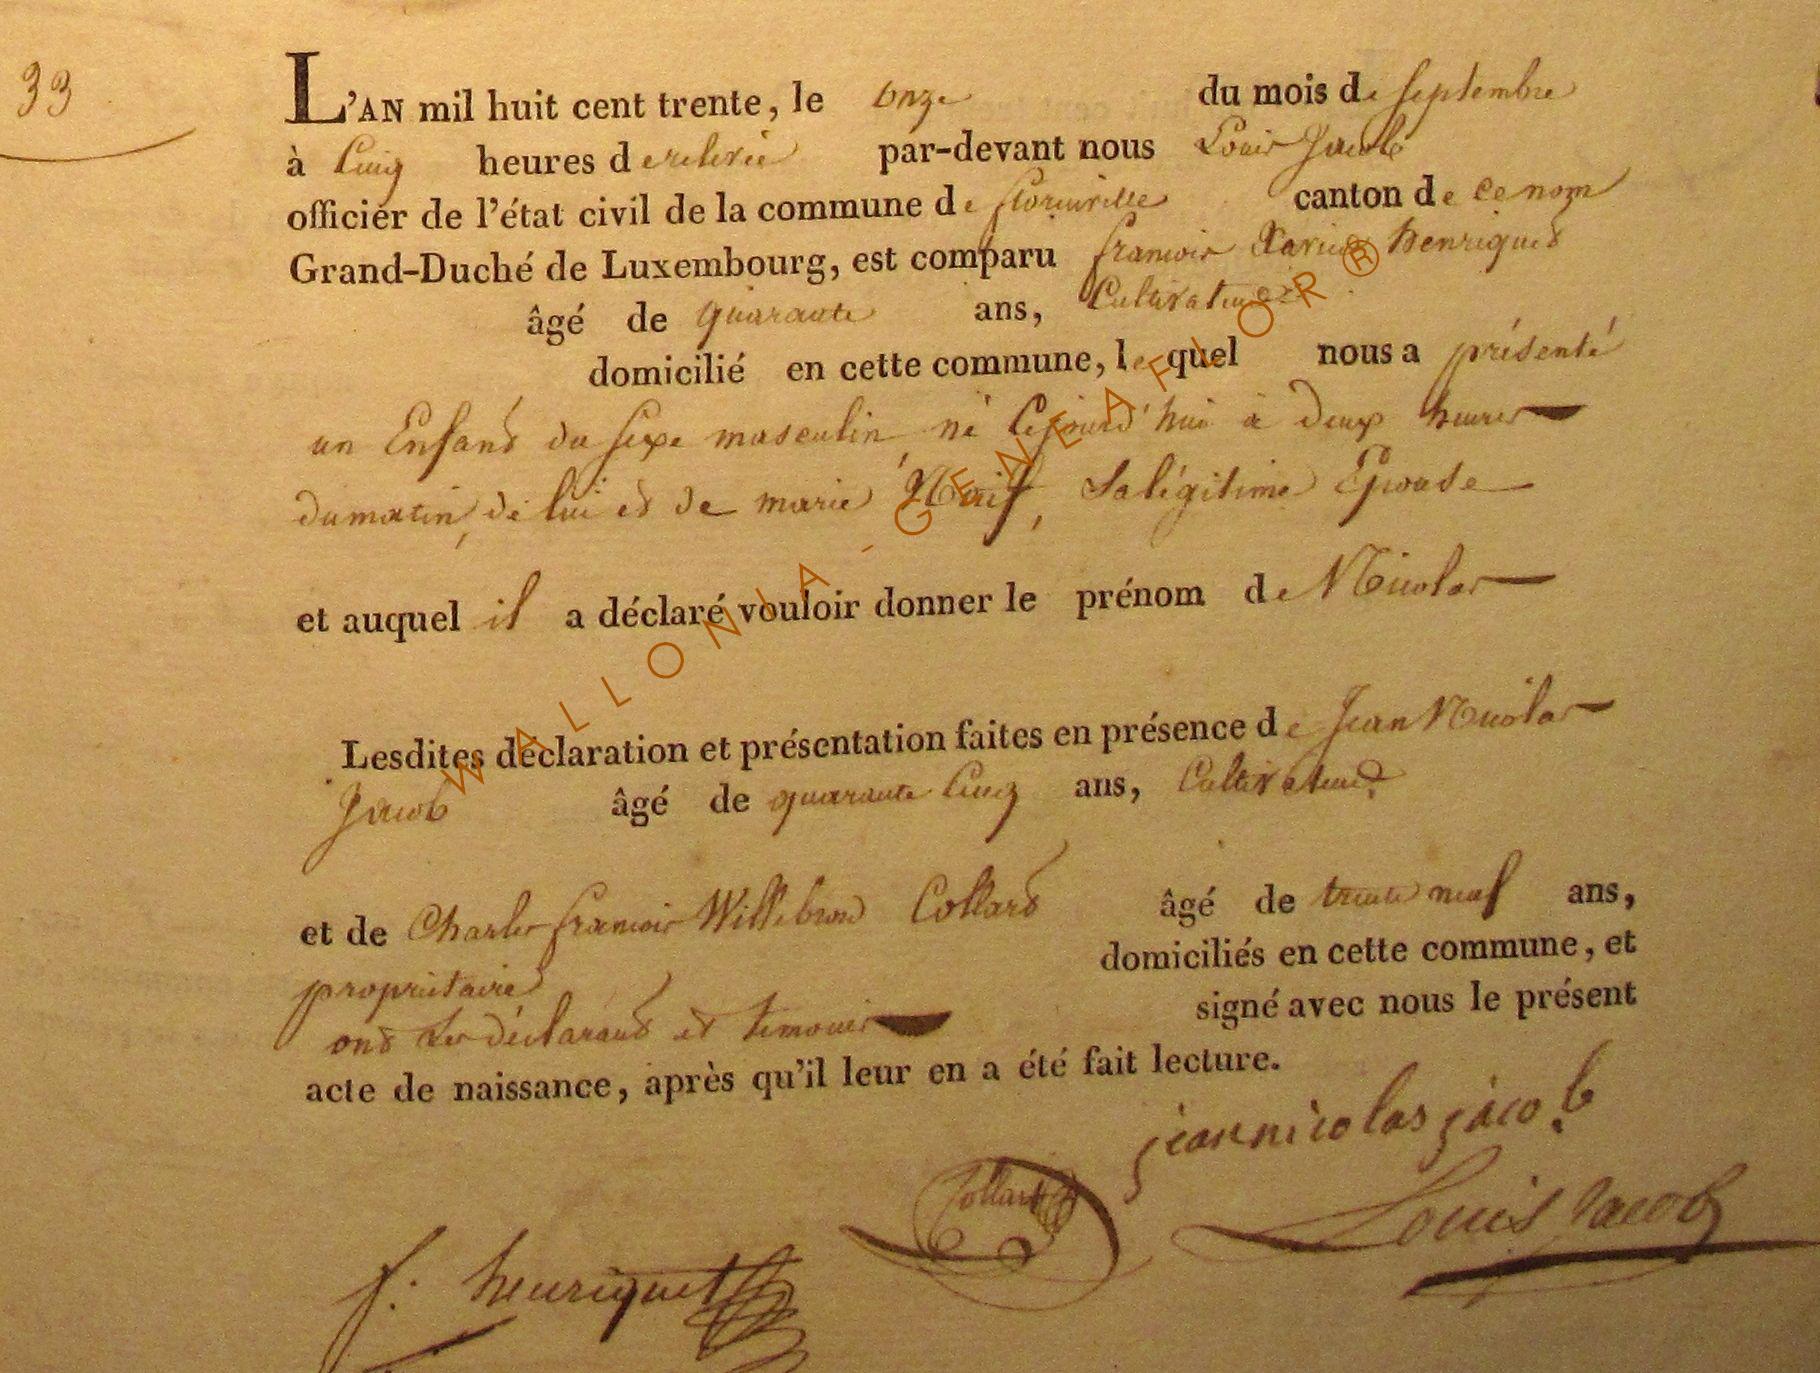 33
L'AN mil huit cent trente, le onze du mois de septembre
à Cinq heures de relevée par-devant nous Louis Jacob
officier de l'état civil de la commune de florenville canton de ce nom
Grand-Duché de Luxembourg, est comparu francois Xavier henriquet
âgé de quarante ans, Cultivateur
domicilié en cette commune, lequel nous a présenté
un Enfant du sexe masculin né Cejourd'hui à deux heures
du matin, de lui et de marie Sa légitime Epouse
et auquel il a déclaré vouloir donner le prénom de Nicolas
Lesdites déclaration et présentation faites en présence de Jean Nicolas
Jacob âgé de quarante Cinq ans, Cultivateur
et de Charles francois Willebrord Collard âgé de trente neuf ans,
propriétaire domiciliés en cette commune, et
ont les déclarant et temoins signé avec nous le présent
acte de naissance, après qu'il leur en a été fait lecture.
jean nicolas jacob
Collard
Louis Jacob
f. henriquet
WALLONIA - GENEAFLOR ®